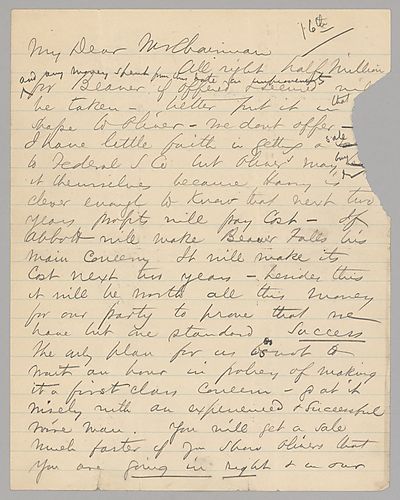 16th
My Dear Mr Chairman
All right half million
and any money spent from this date on improvements
for Beaver if offered & seemed
be taken – better put it in that
shape to Oliver – we dont offer –
I have little faith in getting a sale
to Federal S Co but Oliver's may buy
it themselves because Harry is
clever enough to know that next two
years profits will pay cost – If
Abbott will make Beaver Falls his
main concern It will make its
cost next two years – besides this
it will be worth all this money
for our party to prove that we
have but one standard Success
The only plan for us is not to
wait an hour in policy of making
it a first class concern – go at it
wisely with an experienced & successful
wire man. You will get a sale
much faster if you show Olivers that
you are going in right & in our